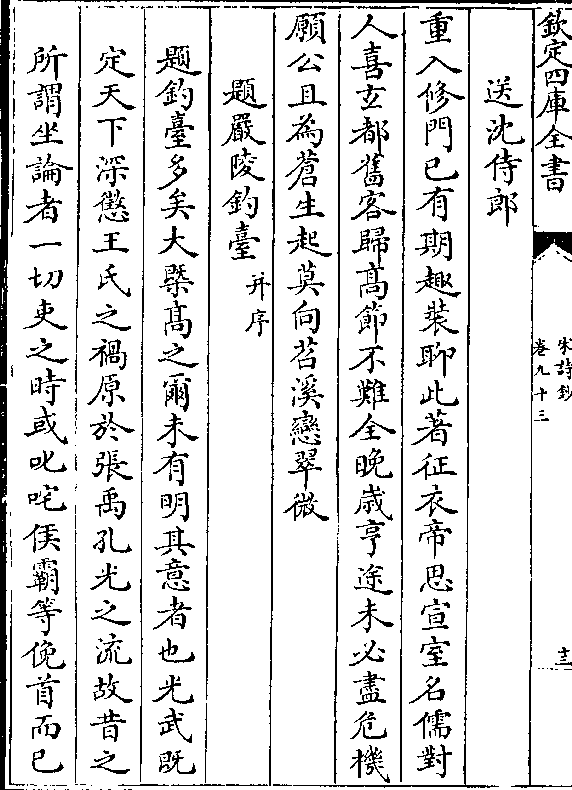 欽定四庫全書
宋詩鈔
卷九十三
十三
送沈侍郎
重入修門已有期趣裝聊此著征衣帝思宣室名儒對
人喜玄都舊客歸高節不難全晚歲亨途未必盡危機
願公且為蒼生起莫向苕溪戀翠微
題嚴陵釣臺并序
題釣臺多矣大槩髙之爾未有明其意者也光武既
定天下深懲王氏之禍原於張禹孔光之流故昔之
所謂坐論者一切吏之時或叱咤侯霸等俛首而已